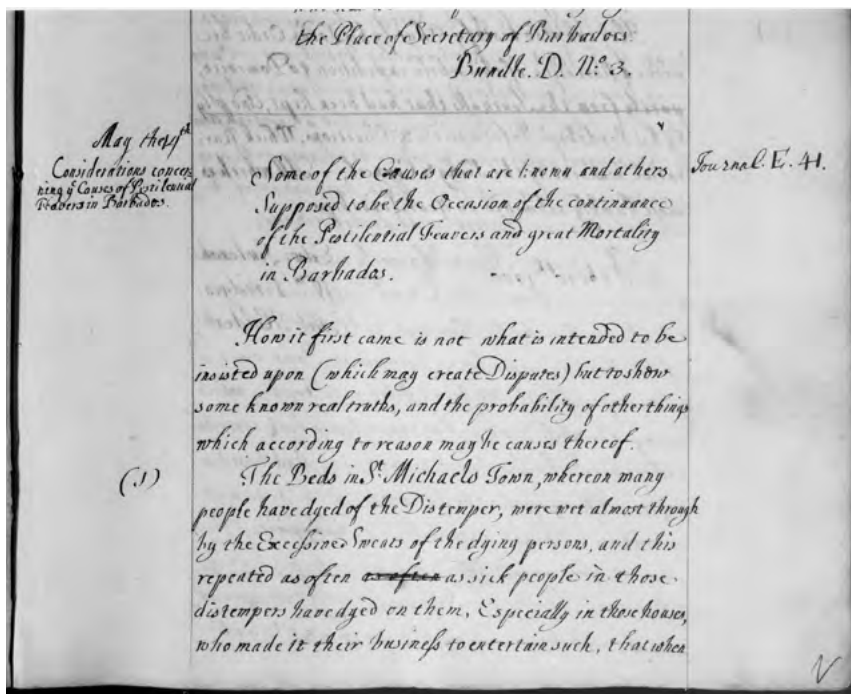 the Place of Secretary of Barbados.
Bundle. D. No. 3.
May the 9th
Considerations concer-
ning ye Causes of Pestilential
Feavers in Barbados.
Journal. E. 41.
Some of the Causes that are known and others
Supposed to be the Occasion of the continuance
of the Pestilential Feavers and great Mortality
in Barbados.
How it first came is not what is intended to be
insisted upon (which may create Disputes) but to show
some known real truths, and the probability of other things
which according to reason may be causes thereof.
(1)
The Beds in St. Michaels Town, whereon many
people have dyed of the Distemper, were wet almost through
by the Excessive Sweats of the dying persons, and this
repeated as often as often as sick people in those
distempers have dyed on them, Especially in those houses,
who made it their business to entertain such, that when